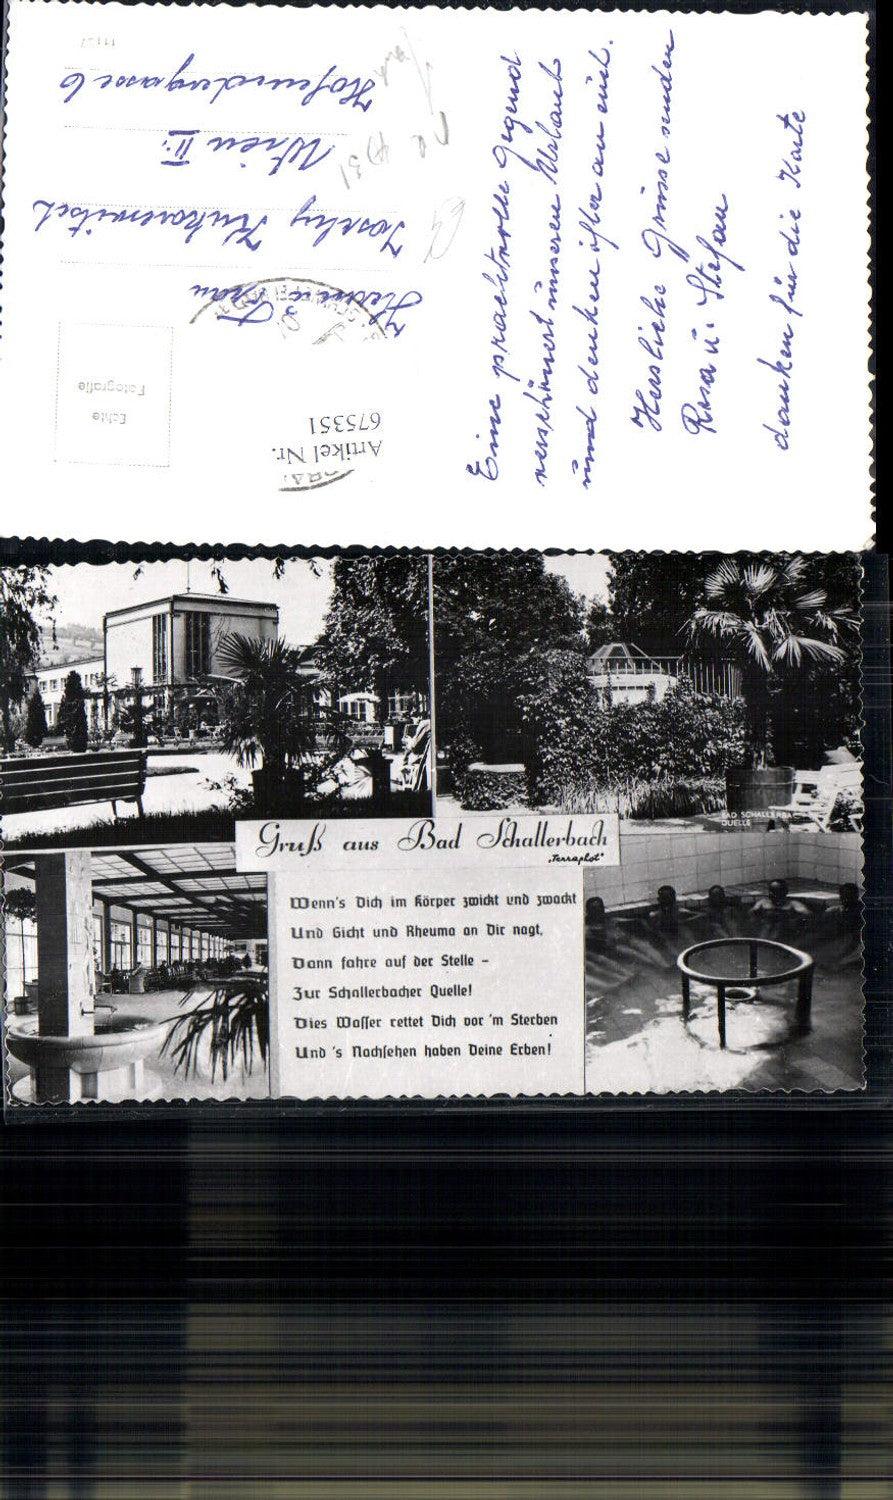 Eine prachtvolle Gegend
verschönert unseren Urlaub
und denken öfter an euch.
Herzliche Grüsse senden
Rosa u. Stefan
danken für die Karte
Herrn Frau
Wien II.
6
Echte
Fotografie
Artikel Nr.
675351
Gruß aus Bad Schallerbach
"Terraphot"
BAD SCHALLERBACH
QUELLE
Wenn's Dich im Körper zwickt und zwackt
Und Gicht und Rheuma an Dir nagt,
Dann fahre auf der Stelle –
Zur Schallerbacher Quelle!
Dies Wasser rettet Dich vor'm Sterben
Und 's Nachsehen haben Deine Erben!